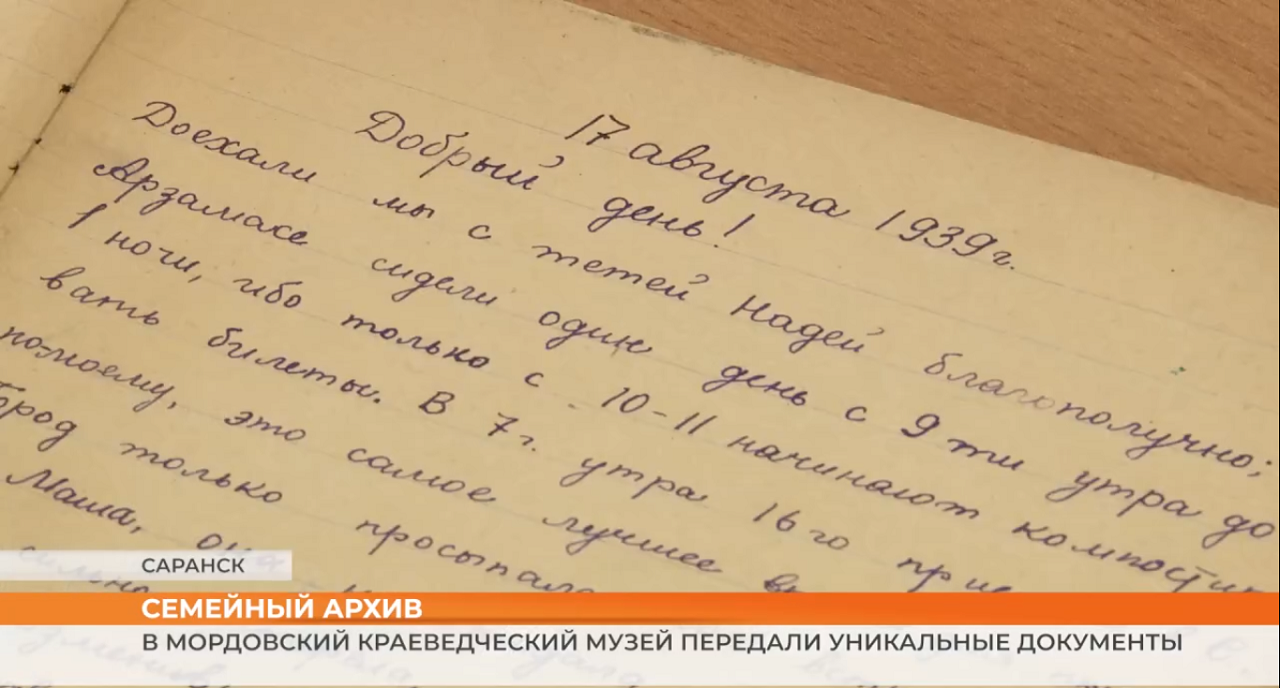 17 августа 1939г.
Добрый день!
Доехали мы с тетей Надей благополучно;
Арзамасе сидели один день с 9 ти утра до
1 ночи, ибо только с 10-11 начинают компостир
вать билеты. В 7 г. утра 16 го прие
по-моему, это самое лучшее
город только просыпал
Маша, она
сильно
САРАНСК
СЕМЕЙНЫЙ АРХИВ
В МОРДОВСКИЙ КРАЕВЕДЧЕСКИЙ МУЗЕЙ ПЕРЕДАЛИ УНИКАЛЬНЫЕ ДОКУМЕНТЫ